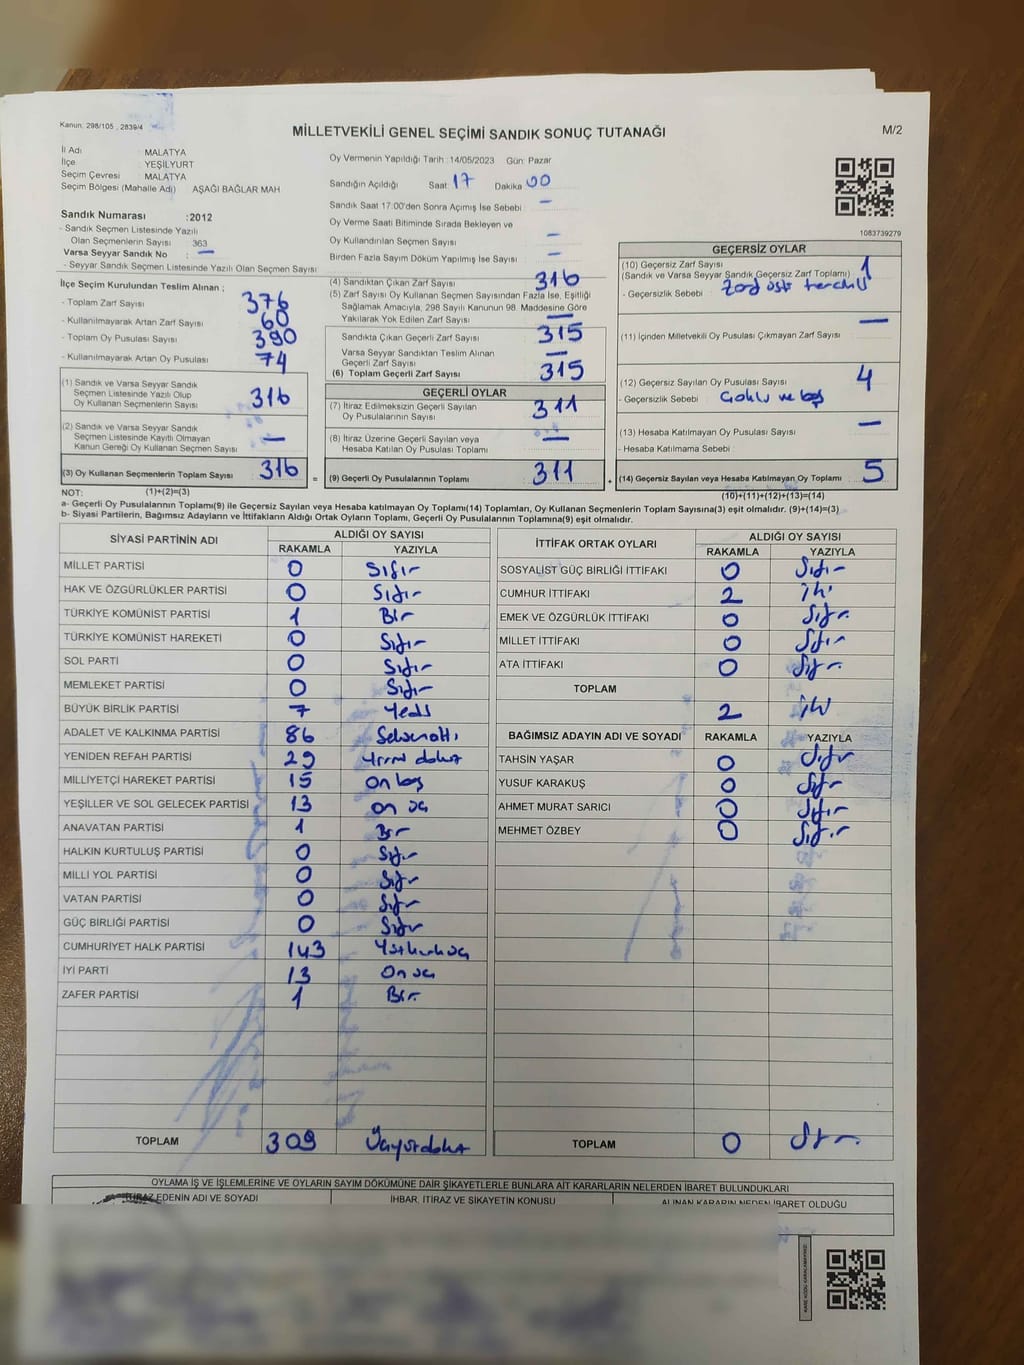 Kanun: 298/105 , 2839/4
MİLLETVEKİLİ GENEL SEÇİMİ SANDIK SONUÇ TUTANAĞI
M/2
İl Adı : MALATYA
İlçe : YEŞİLYURT
Seçim Çevresi : MALATYA
Seçim Bölgesi (Mahalle Adı) AŞAĞI BAĞLAR MAH
Sandık Numarası : 2012
- Sandık Seçmen Listesinde Yazılı
Olan Seçmenlerin Sayısı 363
Varsa Seyyar Sandık No : —
- Seyyar Sandık Seçmen Listesinde Yazılı Olan Seçmen Sayısı
Oy Vermenin Yapıldığı Tarih : 14/05/2023 Gün: Pazar
Sandığın Açıldığı Saat: 17 Dakika 00
Sandık Saat 17:00'den Sonra Açımış İse Sebebi : —
Oy Verme Saati Bitiminde Sırada Bekleyen ve
Oy Kullandırılan Seçmen Sayısı —
Birden Fazla Sayım Döküm Yapılmış İse Sayısı : —
1083739279
İlçe Seçim Kurulundan Teslim Alınan ;
- Toplam Zarf Sayısı 376
- Kullanılmayarak Artan Zarf Sayısı 60
- Toplam Oy Pusulası Sayısı 390
- Kullanılmayarak Artan Oy Pusulası 74
(1) Sandık ve Varsa Seyyar Sandık
Seçmen Listesinde Yazılı Olup
Oy Kullanan Seçmenlerin Sayısı 316
(2) Sandık ve Varsa Seyyar Sandık
Seçmen Listesinde Kayıtlı Olmayan
Kanun Gereği Oy Kullanan Seçmen Sayısı —
(3) Oy Kullanan Seçmenlerin Toplam Sayısı 316 =
(4) Sandıktan Çıkan Zarf Sayısı 316
(5) Zarf Sayısı Oy Kullanan Seçmen Sayısından Fazla İse, Eşitliği
Sağlamak Amacıyla, 298 Sayılı Kanunun 98. Maddesine Göre
Yakılarak Yok Edilen Zarf Sayısı —
Sandıkta Çıkan Geçerli Zarf Sayısı 315
Varsa Seyyar Sandıktan Teslim Alınan
Geçerli Zarf Sayısı —
(6) Toplam Geçerli Zarf Sayısı 315
GEÇERLİ OYLAR
(7) İtiraz Edilmeksizin Geçerli Sayılan
Oy Pusulalarının Sayısı 311
(8) İtiraz Üzerine Geçerli Sayılan veya
Hesaba Katılan Oy Pusulası Toplamı —
(9) Geçerli Oy Pusulalarının Toplamı 311 +
GEÇERSİZ OYLAR
(10) Geçersiz Zarf Sayısı
(Sandık ve Varsa Seyyar Sandık Geçersiz Zarf Toplamı) 1
- Geçersizlik Sebebi :
(11) İçinden Milletvekili Oy Pusulası Çıkmayan Zarf Sayısı —
(12) Geçersiz Sayılan Oy Pusulası Sayısı 4
- Geçersizlik Sebebi : Çoklu ve boş
(13) Hesaba Katılmayan Oy Pusulası Sayısı —
- Hesaba Katılmama Sebebi :
(14) Geçersiz Sayılan veya Hesaba Katılmayan Oy Toplamı 5
NOT: (1)+(2)=(3)
(10)+(11)+(12)+(13)=(14)
a- Geçerli Oy Pusulalarının Toplamı(9) ile Geçersiz Sayılan veya Hesaba katılmayan Oy Toplamı(14) Toplamları, Oy Kullanan Seçmenlerin Toplam Sayısına(3) eşit olmalıdır. (9)+(14)=(3)
b- Siyasi Partilerin, Bağımsız Adayların ve İttifakların Aldığı Ortak Oyların Toplamı, Geçerli Oy Pusulalarının Toplamına(9) eşit olmalıdır.
SİYASİ PARTİNİN ADI ALDIĞI OY SAYISI
RAKAMLA YAZIYLA
MİLLET PARTİSİ 0 Sıfır
HAK VE ÖZGÜRLÜKLER PARTİSİ 0 Sıfır
TÜRKİYE KOMÜNİST PARTİSİ 1 Bir
TÜRKİYE KOMÜNİST HAREKETİ 0 Sıfır
SOL PARTİ 0 Sıfır
MEMLEKET PARTİSİ 0 Sıfır
BÜYÜK BİRLİK PARTİSİ 7 Yedi
ADALET VE KALKINMA PARTİSİ 86 Seksenaltı
YENİDEN REFAH PARTİSİ 29 Yirmi dokuz
MİLLİYETÇİ HAREKET PARTİSİ 15 On beş
YEŞİLLER VE SOL GELECEK PARTİSİ 13 on üç
ANAVATAN PARTİSİ 1 Bir
HALKIN KURTULUŞ PARTİSİ 0 Sıfır
MİLLİ YOL PARTİSİ 0 Sıfır
VATAN PARTİSİ 0 Sıfır
GÜÇ BİRLİĞİ PARTİSİ 0 Sıfır
CUMHURİYET HALK PARTİSİ 143 Yüzkırküç
İYİ PARTİ 13 On üç
ZAFER PARTİSİ 1 Bir
TOPLAM 309 Üçyüzdokuz
İTTİFAK ORTAK OYLARI ALDIĞI OY SAYISI
RAKAMLA YAZIYLA
SOSYALİST GÜÇ BİRLİĞİ İTTİFAKI 0 Sıfır
CUMHUR İTTİFAKI 2 iki
EMEK VE ÖZGÜRLÜK İTTİFAKI 0 Sıfır
MİLLET İTTİFAKI 0 Sıfır
ATA İTTİFAKI 0 Sıfır
TOPLAM 2 iki
BAĞIMSIZ ADAYIN ADI VE SOYADI RAKAMLA YAZIYLA
TAHSİN YAŞAR 0 Sıfır
YUSUF KARAKUŞ 0 Sıfır
AHMET MURAT SARICI 0 Sıfır
MEHMET ÖZBEY 0 Sıfır
TOPLAM 0 Sıfır
OYLAMA İŞ VE İŞLEMLERİNE VE OYLARIN SAYIM DÖKÜMÜNE DAİR ŞİKAYETLERLE BUNLARA AİT KARARLARIN NELERDEN İBARET BULUNDUKLARI
İTİRAZ EDENİN ADI VE SOYADI İHBAR, İTİRAZ VE ŞİKAYETİN KONUSU ALINAN KARARIN NEDEN İBARET OLDUĞU